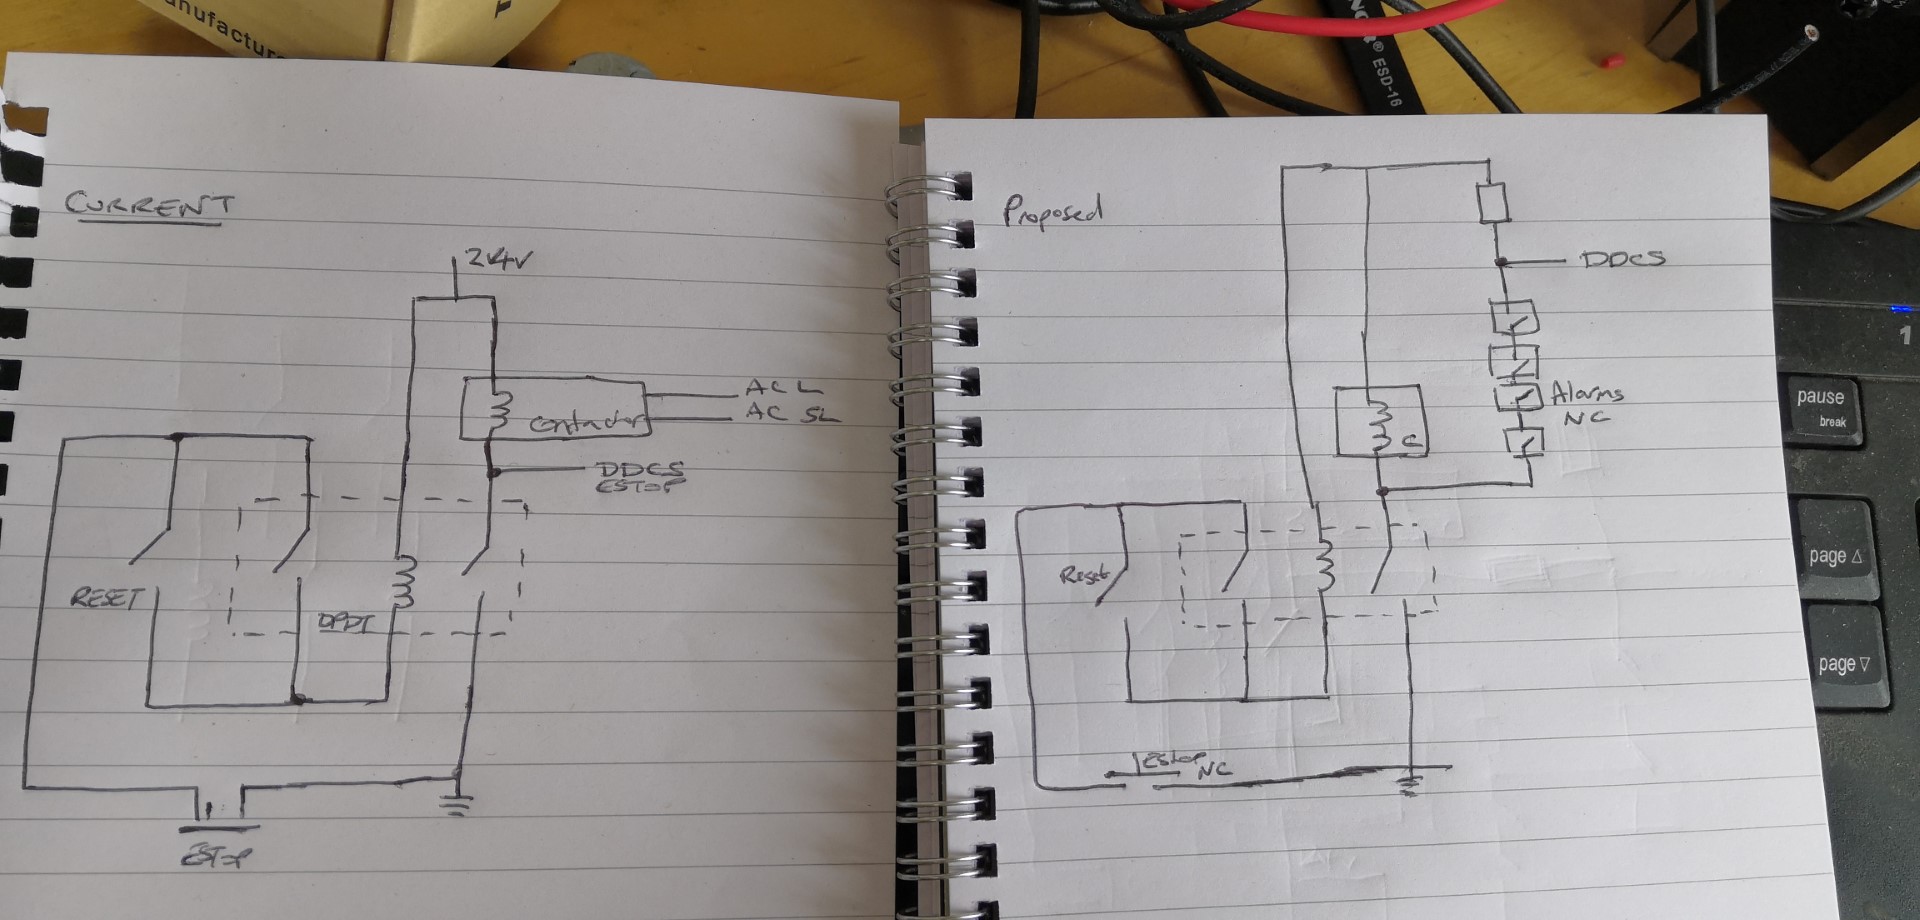 anufacture
ESD-16
CURRENT
24V
AC L
Contactor
AC SL
DDCS
ESTOP
RESET
DPDT
ESTOP
Proposed
DDCS
Alarms
NC
C
Reset
Estop
NC
1
pause
break
page △
page ▽